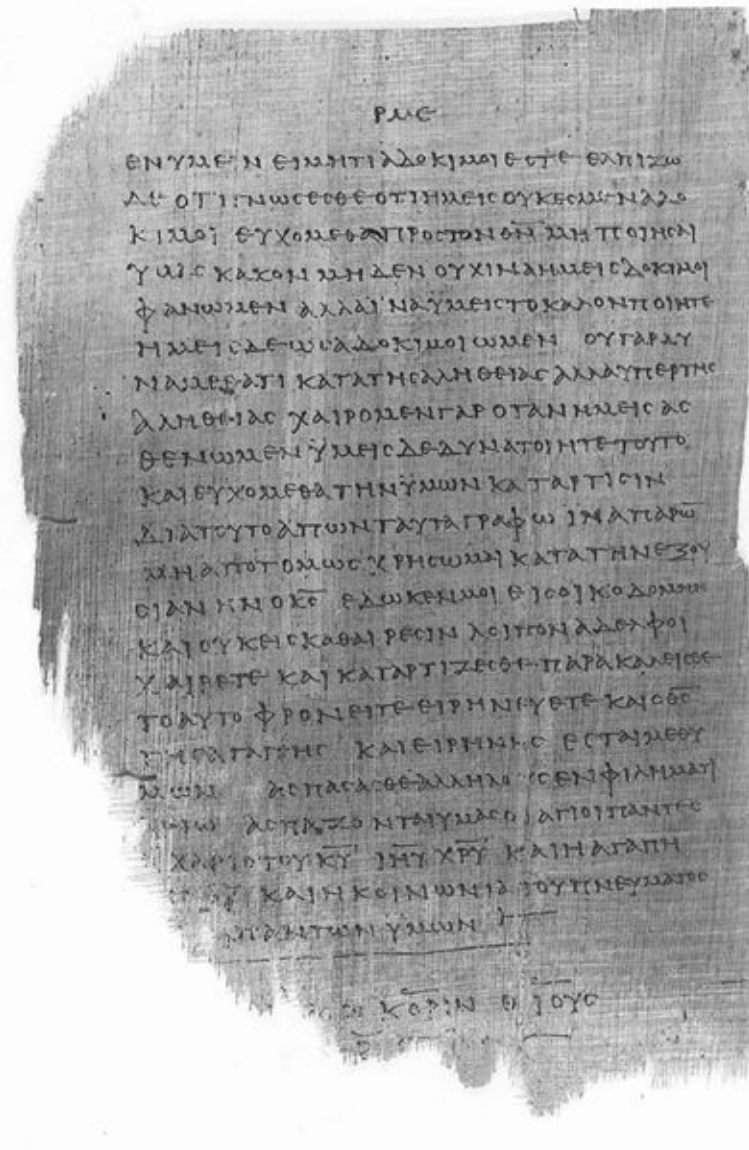 ΡΜΕ
ΕΝ ΥΜΕΙΝ ΕΙ ΜΗΤΙ ΑΔΟΚΙΜΟΙ ΕΣΤΕ ΕΛΠΙΖΩ
ΔΕ ΟΤΙ ΓΝΩΣΕΣΘΕ ΟΤΙ ΗΜΕΙΣ ΟΥΚ ΕΣΜΕΝ ΑΔΟ
ΚΙΜΟΙ ΕΥΧΟΜΕΘΑ ΠΡΟΣ ΤΟΝ Θ̅Ν̅ ΜΗ ΠΟΙΗΣΑΙ
ΥΜΑΣ ΚΑΚΟΝ ΜΗΔΕΝ ΟΥΧ ΙΝΑ ΗΜΕΙΣ ΔΟΚΙΜΟΙ
ΦΑΝΩΜΕΝ ΑΛΛΑ ΙΝΑ ΥΜΕΙΣ ΤΟ ΚΑΛΟΝ ΠΟΙΗΤΕ
ΗΜΕΙΣ ΔΕ ΩΣ ΑΔΟΚΙΜΟΙ ΩΜΕΝ ΟΥ ΓΑΡ ΔΥ
ΝΑΜΕΘΑ ΤΙ ΚΑΤΑ ΤΗΣ ΑΛΗΘΕΙΑΣ ΑΛΛΑ ΥΠΕΡ ΤΗΣ
ΑΛΗΘΕΙΑΣ ΧΑΙΡΟΜΕΝ ΓΑΡ ΟΤΑΝ ΗΜΕΙΣ ΑΣ
ΘΕΝΩΜΕΝ ΥΜΕΙΣ ΔΕ ΔΥΝΑΤΟΙ ΗΤΕ ΤΟΥΤΟ
ΚΑΙ ΕΥΧΟΜΕΘΑ ΤΗΝ ΥΜΩΝ ΚΑΤΑΡΤΙΣΙΝ
ΔΙΑ ΤΟΥΤΟ ΑΠΩΝ ΤΑΥΤΑ ΓΡΑΦΩ ΙΝΑ ΠΑΡΩ̅
ΜΗ ΑΠΟΤΟΜΩΣ ΧΡΗΣΩΜΑΙ ΚΑΤΑ ΤΗΝ ΕΞΟΥ
ΣΙΑΝ ΗΝ Ο Κ̅Σ̅ ΕΔΩΚΕΝ ΜΟΙ ΕΙΣ ΟΙΚΟΔΟΜΗΝ
ΚΑΙ ΟΥΚ ΕΙΣ ΚΑΘΑΙΡΕΣΙΝ ΛΟΙΠΟΝ ΑΔΕΛΦΟΙ
ΧΑΙΡΕΤΕ ΚΑΙ ΚΑΤΑΡΤΙΖΕΣΘΕ ΠΑΡΑΚΑΛΕΙΣΘΕ
ΤΟ ΑΥΤΟ ΦΡΟΝΕΙΤΕ ΕΙΡΗΝΕΥΕΤΕ ΚΑΙ Ο Θ̅Σ̅
ΤΗΣ ΑΓΑΠΗΣ ΚΑΙ ΕΙΡΗΝΗΣ ΕΣΤΑΙ ΜΕΘ Υ
ΜΩΝ ΑΣΠΑΣΑΣΘΕ ΑΛΛΗΛΟΥΣ ΕΝ ΦΙΛΗΜΑΤΙ
ΑΣΠΑΖΟΝΤΑΙ ΥΜΑΣ ΟΙ ΑΓΙΟΙ ΠΑΝΤΕΣ
ΧΑΡΙΣ ΤΟΥ Κ̅Υ̅ Ι̅Η̅Υ̅ Χ̅Ρ̅Υ̅ ΚΑΙ Η ΑΓΑΠΗ
ΚΑΙ Η ΚΟΙΝΩΝΙΑ ΤΟΥ ΠΝΕΥΜΑΤΟΣ
ΠΑΝΤΩΝ ΥΜΩΝ
ΚΟΡΙΝΘΙΟΥΣ